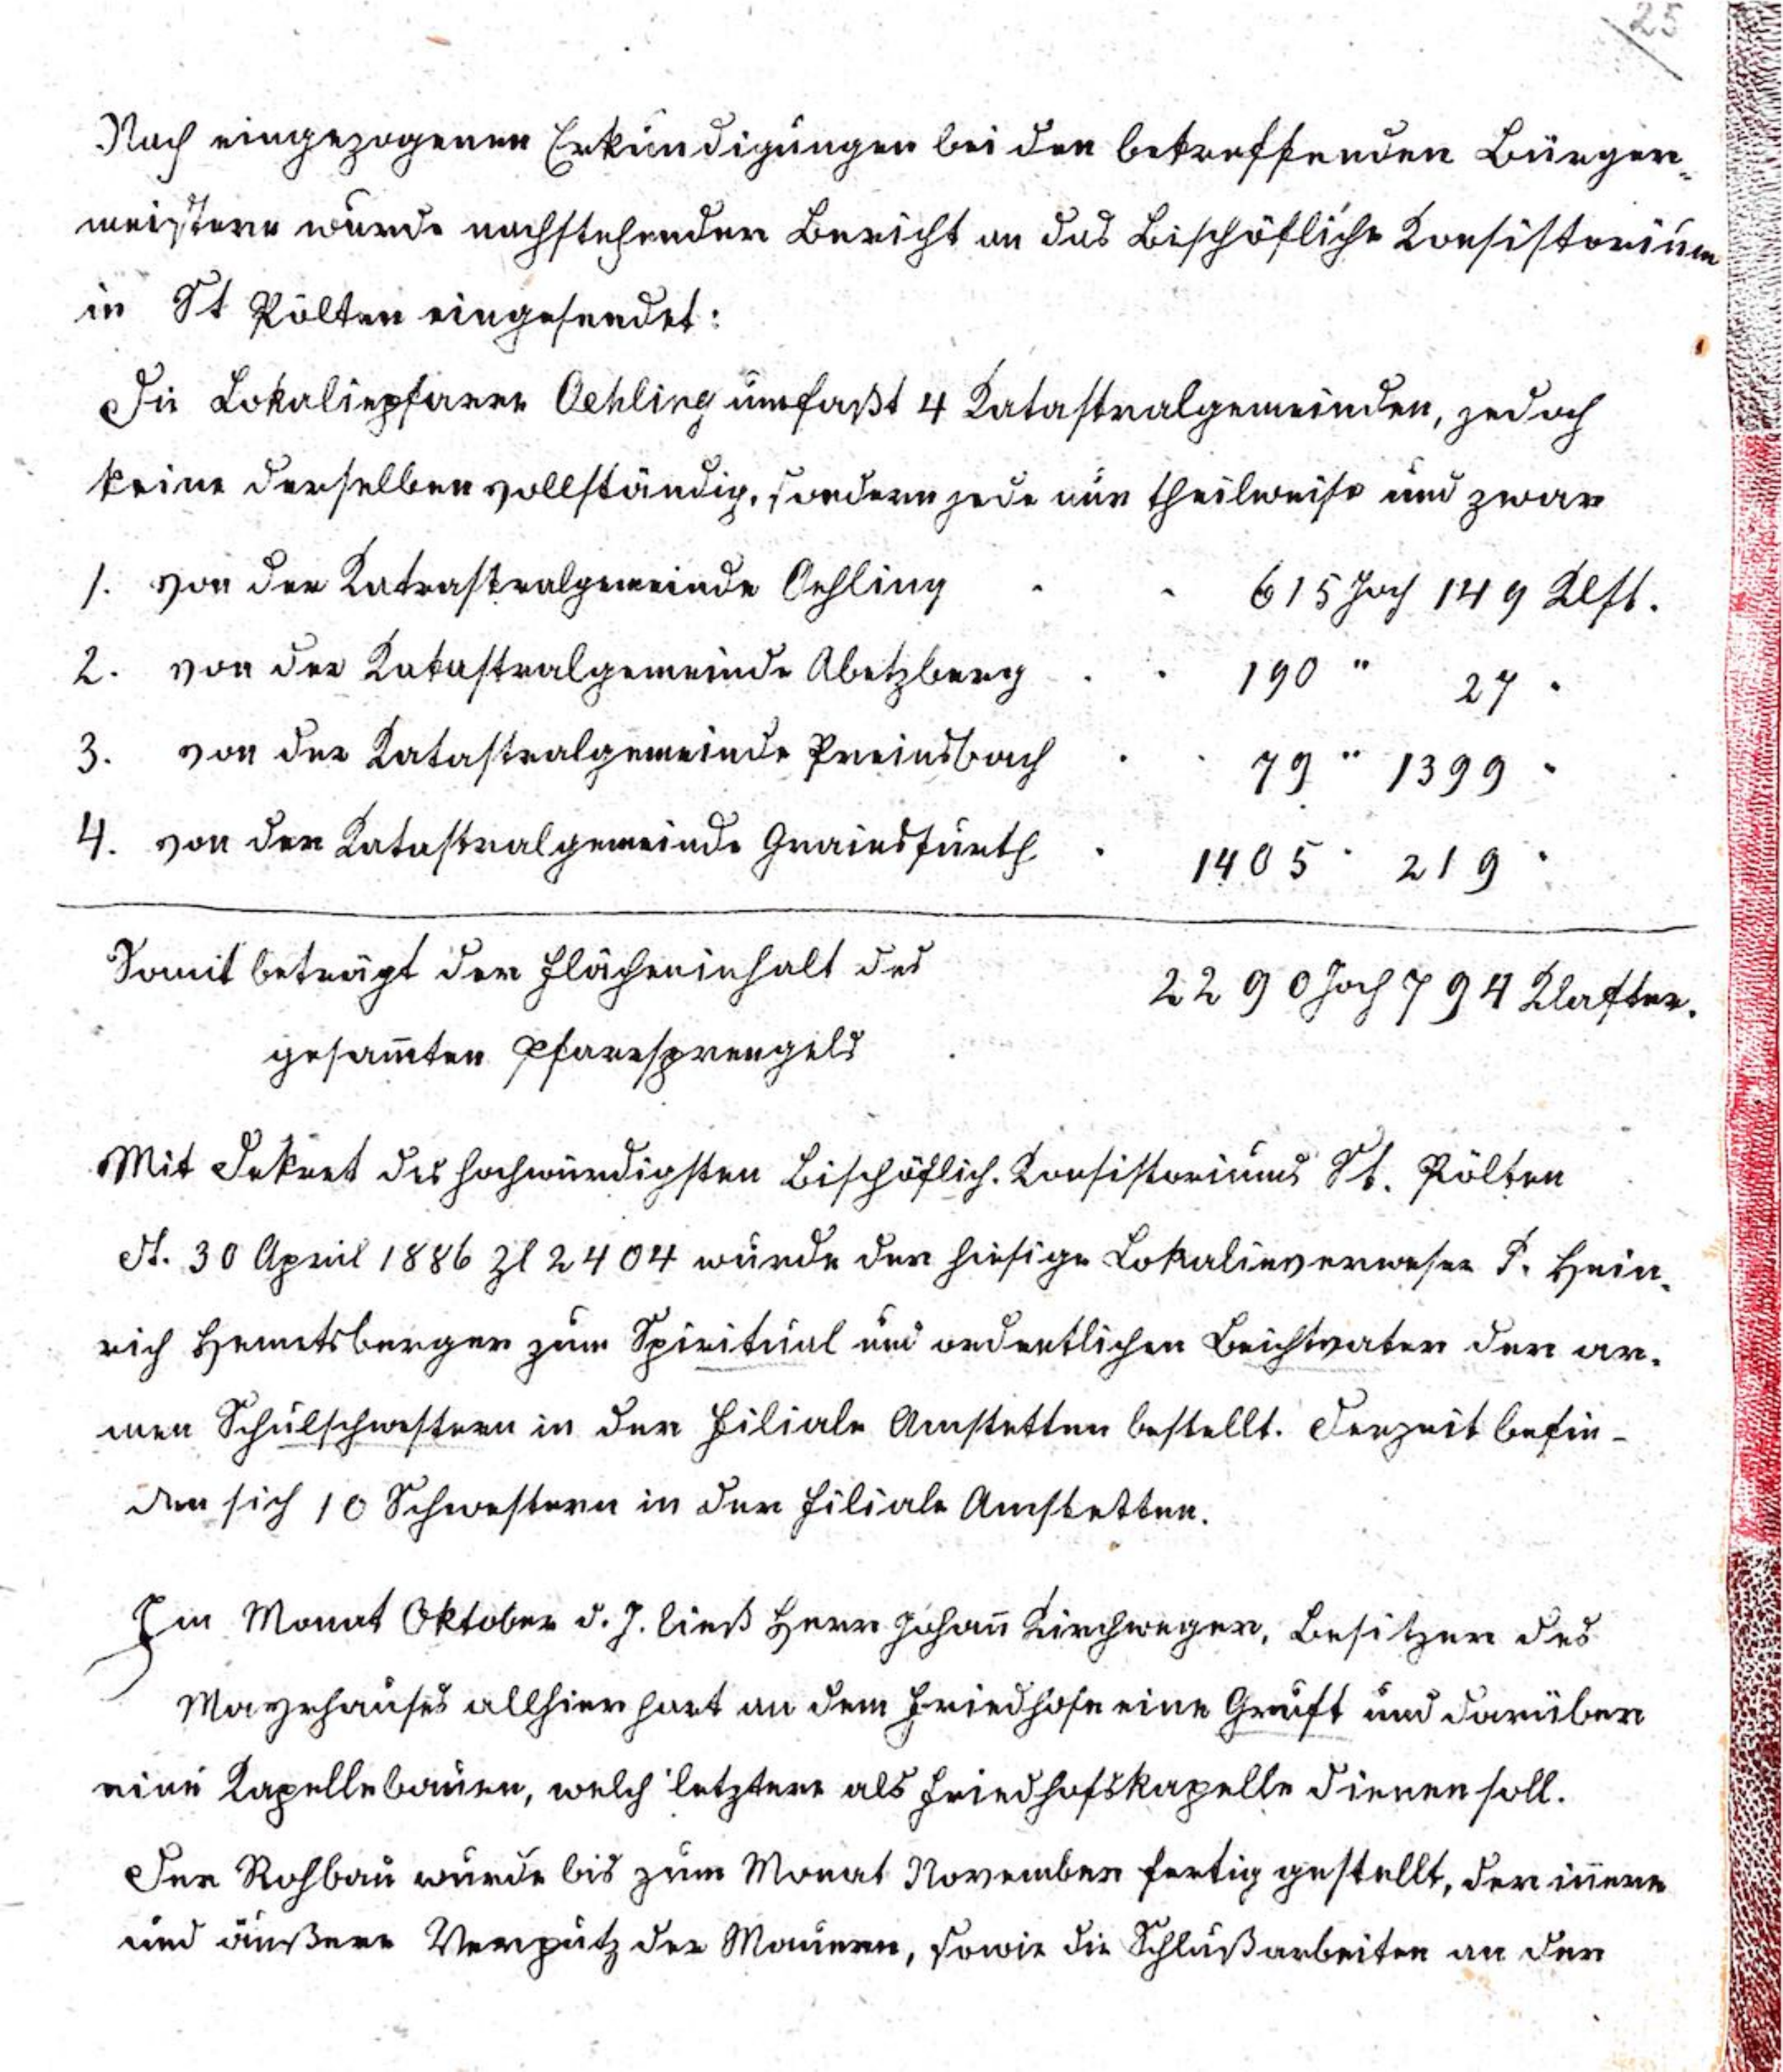 25
Nach eingezogenen Erkundigungen bei den betreffenden Bürger-
meistern wurde nachstehender Bericht an das Bischöfliche Konsistorium
in St Pölten eingesendet:
Die Lokaliepfarre Oehling umfaßt 4 Katastralgemeinden, jedoch
keine derselben vollständig, sondern jede nur theilweise und zwar
1. von der Katrastralgemeinde Oehling - - 615 Joch 149 Klft.
2. von der Katastralgemeinde Abetzberg . . 190 " 27 "
3. von der Katastralgemeinde Preinsbach . . 79 " 1399 "
4. von der Katastralgemeinde Grainsfurth . 1405 " 219 "
Somit beträgt der Flächeninhalt des 2290 Joch 794 Klafter.
gesam̄ten Pfarrsprengels
Mit Dekret des hochwürdigsten Bischöflich. Konsistoriums St. Pölten
dt. 30 April 1886 Zl 2404 wurde der hiesige Lokalieverweser P. Hein-
rich Hemetsberger zum Spiritual und ordentlichen Beichtvater der ar-
men Schulschwestern in der Filiale Amstetten bestellt. Derzeit befin-
den sich 10 Schwestern in der Filiale Amstetten.
Im Monat Oktober d. J. ließ Herr Johan̄ Kirchweger, Besitzer des
Mayrhauses allhier hart an dem Friedhofe eine Gruft und darüber
eine Kapelle bauen, welch' letztere als Friedhofskapelle dienen soll.
Der Rohbau wurde bis zum Monat November fertig gestellt, der in̄ere
und äußere Verputz der Mauern, sowie die Schlußarbeiten an der